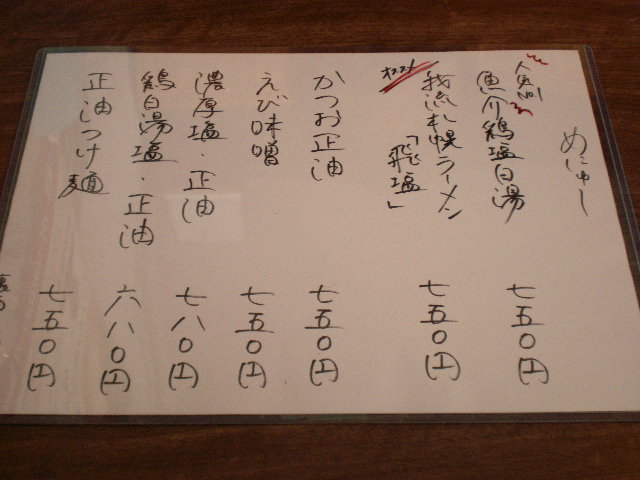 めにゅー
人気No.1
魚介鶏塩白湯
七五〇円
オススメ
我流札幌ラーメン
「飛塩」
七五〇円
かつお正油
七五〇円
えび味噌
七五〇円
濃厚塩・正油
七八〇円
鶏白湯塩・正油
六八〇円
正油つけ麺
七五〇円